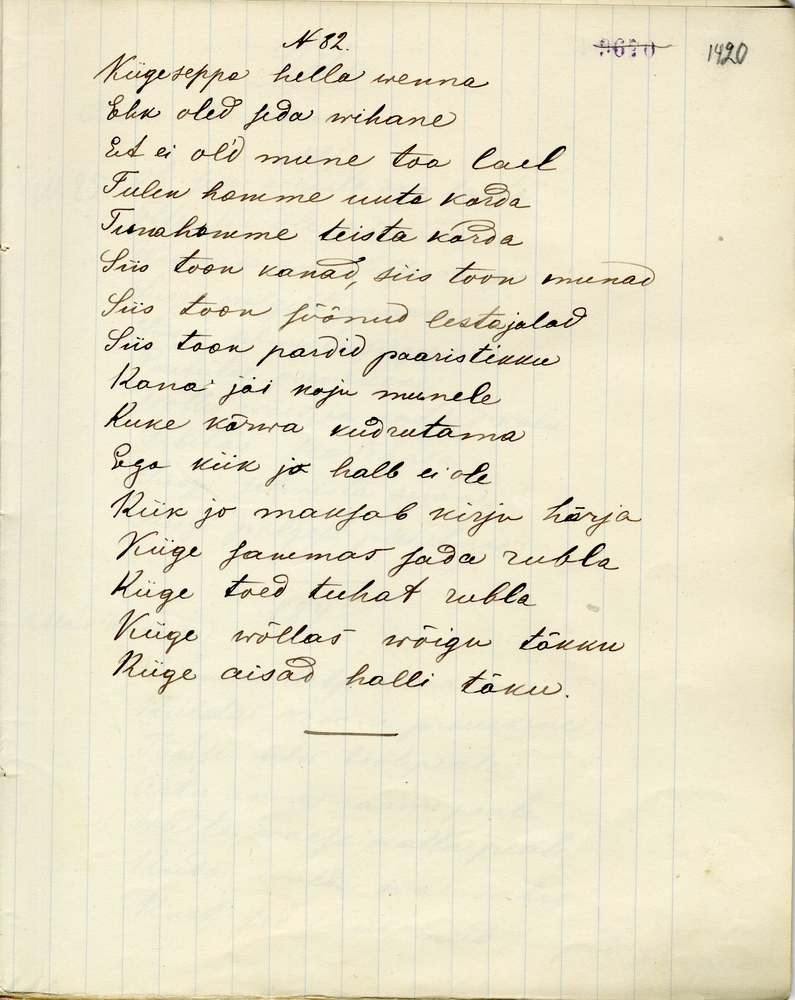 N 82.
9670
1420
Kiigeseppa hella wenna
Ehk oled seda wihane
Et ei old mune too lael
Tulen homme uuta korda
Tunahomme teista korda
Siis toon kanad, siis toon munad
Siis toon söönud lestajalad
Siis toon pardid paaristikku
Kana jäi koju munele
Kuke kõrwa kudrutama
Ega kiik jo halb ei ole
Kiik jo maksab kirju härja
Kiige sammas sada rubla
Kiige toed tuhat rubla
Kiige wõllas wõigu täkku
Kiige aisad halli täku.